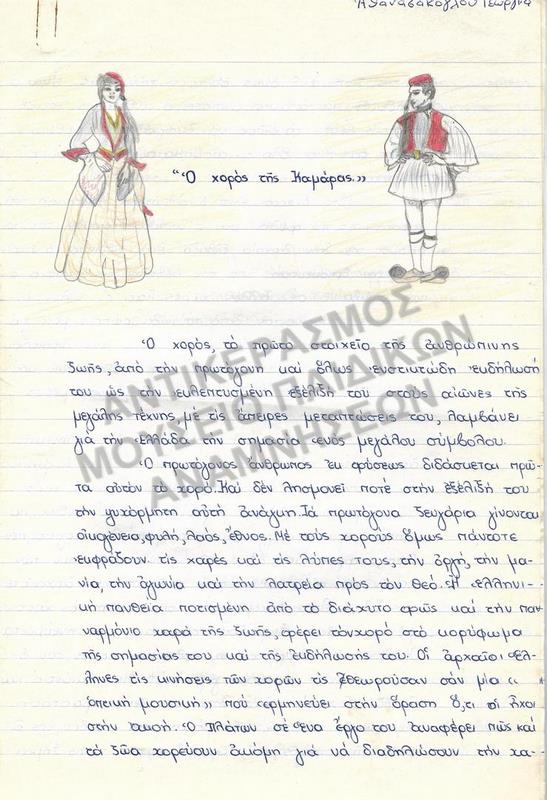 Ἀθανασάκογλου Γεωργία
“Ὁ χορός τῆς Καμάρας.»
Ὁ χορός, τό πρῶτο στοιχεῖο τῆς ἀνθρώπινης
ζωῆς, ἀπό τήν πρωτόγονη καί ὅλως ἐνστικτώδη ἐκδήλωσή
του ὡς τήν ἐκλεπτυσμένη ἐξέλιξή του στούς αἰῶνες τῆς
μεγάλης τέχνης μέ τίς ἄπειρες μεταπτώσεις του, λαμβάνει
γιά τήν Ἑλλάδα τήν σημασία ἑνός μεγάλου συμβόλου.
Ὁ πρωτόγονος ἄνθρωπος ἐκ φύσεως διδάσκεται πρῶ-
τα αὐτόν τό χορό. Καί δέν λησμονεῖ ποτέ στήν ἐξέλιξή του
τήν ψυχόρμητη αὐτή ἀνάγκη. Τά πρωτόγονα ζευγάρια γίνονται
οἰκογένεια, φυλή, λαός, ἔθνος. Μέ τούς χορούς ὅμως πάντοτε
ἐκφράζουν τίς χαρές καί τίς λύπες τους, τήν ὀργή, τήν μα-
νία, τήν ἀγωνία καί τήν λατρεία πρός τόν Θεό. Ἡ ἑλληνι-
κή πανθεία ποτισμένη ἀπό τό διάχυτο φῶς καί τήν παν
ναρμόνιο χαρά τῆς ζωῆς, φέρει τόν χορό στό κορύφωμα
τῆς σημασίας του καί τῆς ἐκδήλωσής του. Οἱ ἀρχαῖοι Ἕλ-
ληνες τίς κινήσεις τῶν χορῶν τίς ἐθεωροῦσαν σάν μία «
ὀπτική μουσική» πού ἑρμηνεύει στήν ὅραση ὅ,τι οἱ ἦχοι
στήν ἀκοή. Ὁ Πλάτων σέ ἕνα ἔργο του ἀναφέρει πώς καί
τά ζῶα χορεύουν ἀκόμη γιά νά διαδηλώσουν τήν χα-
ΑΝΤΙΚΕΡΑΣΜΟΣ
ΜΟΥΣΕΙΟ ΠΑΙΔΙΚΩΝ
ΑΝΑΜΝΗΣΕΩΝ